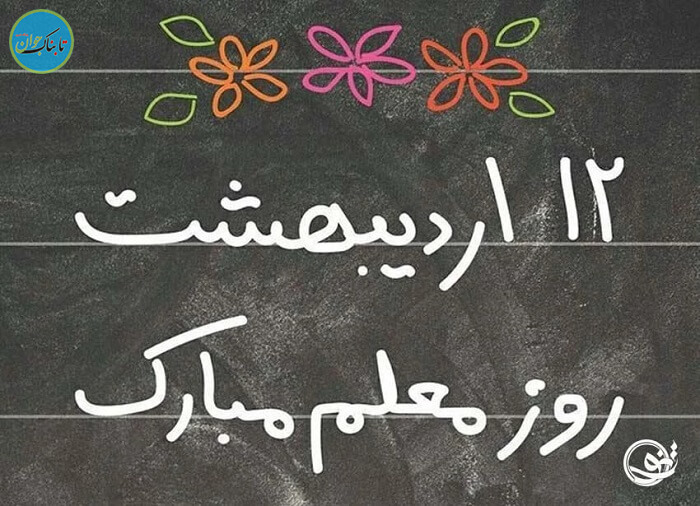 تابناک جوان
۱۲ اردیبهشت
روز معلم مبارک